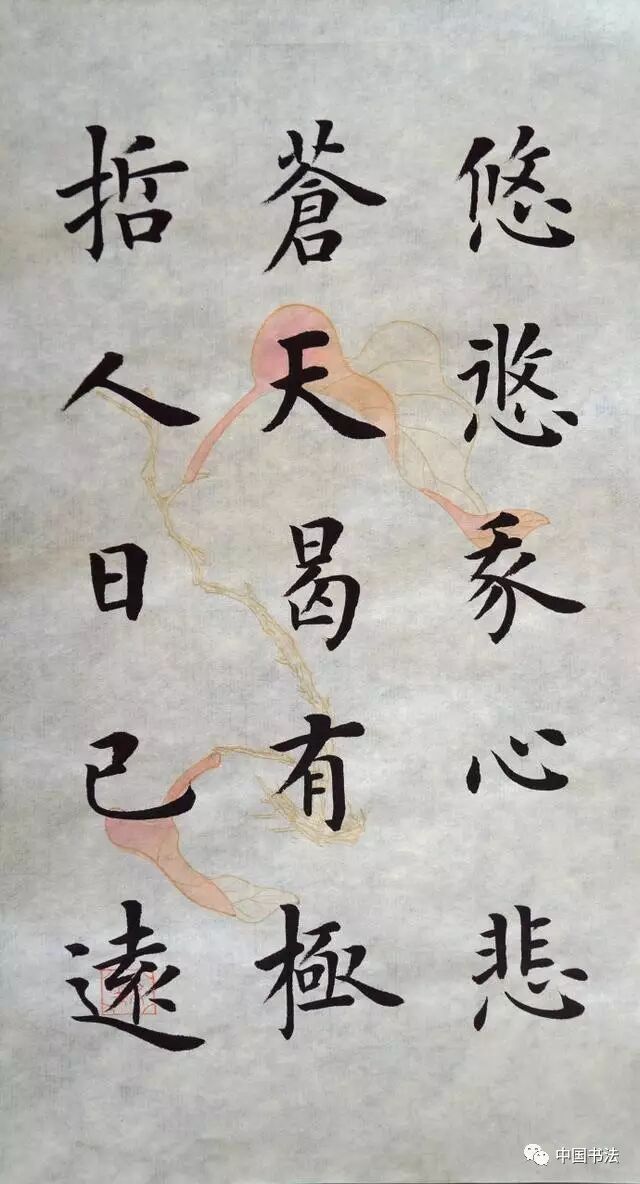 悠悠我心悲
蒼天曷有極
哲人日已遠
中国书法